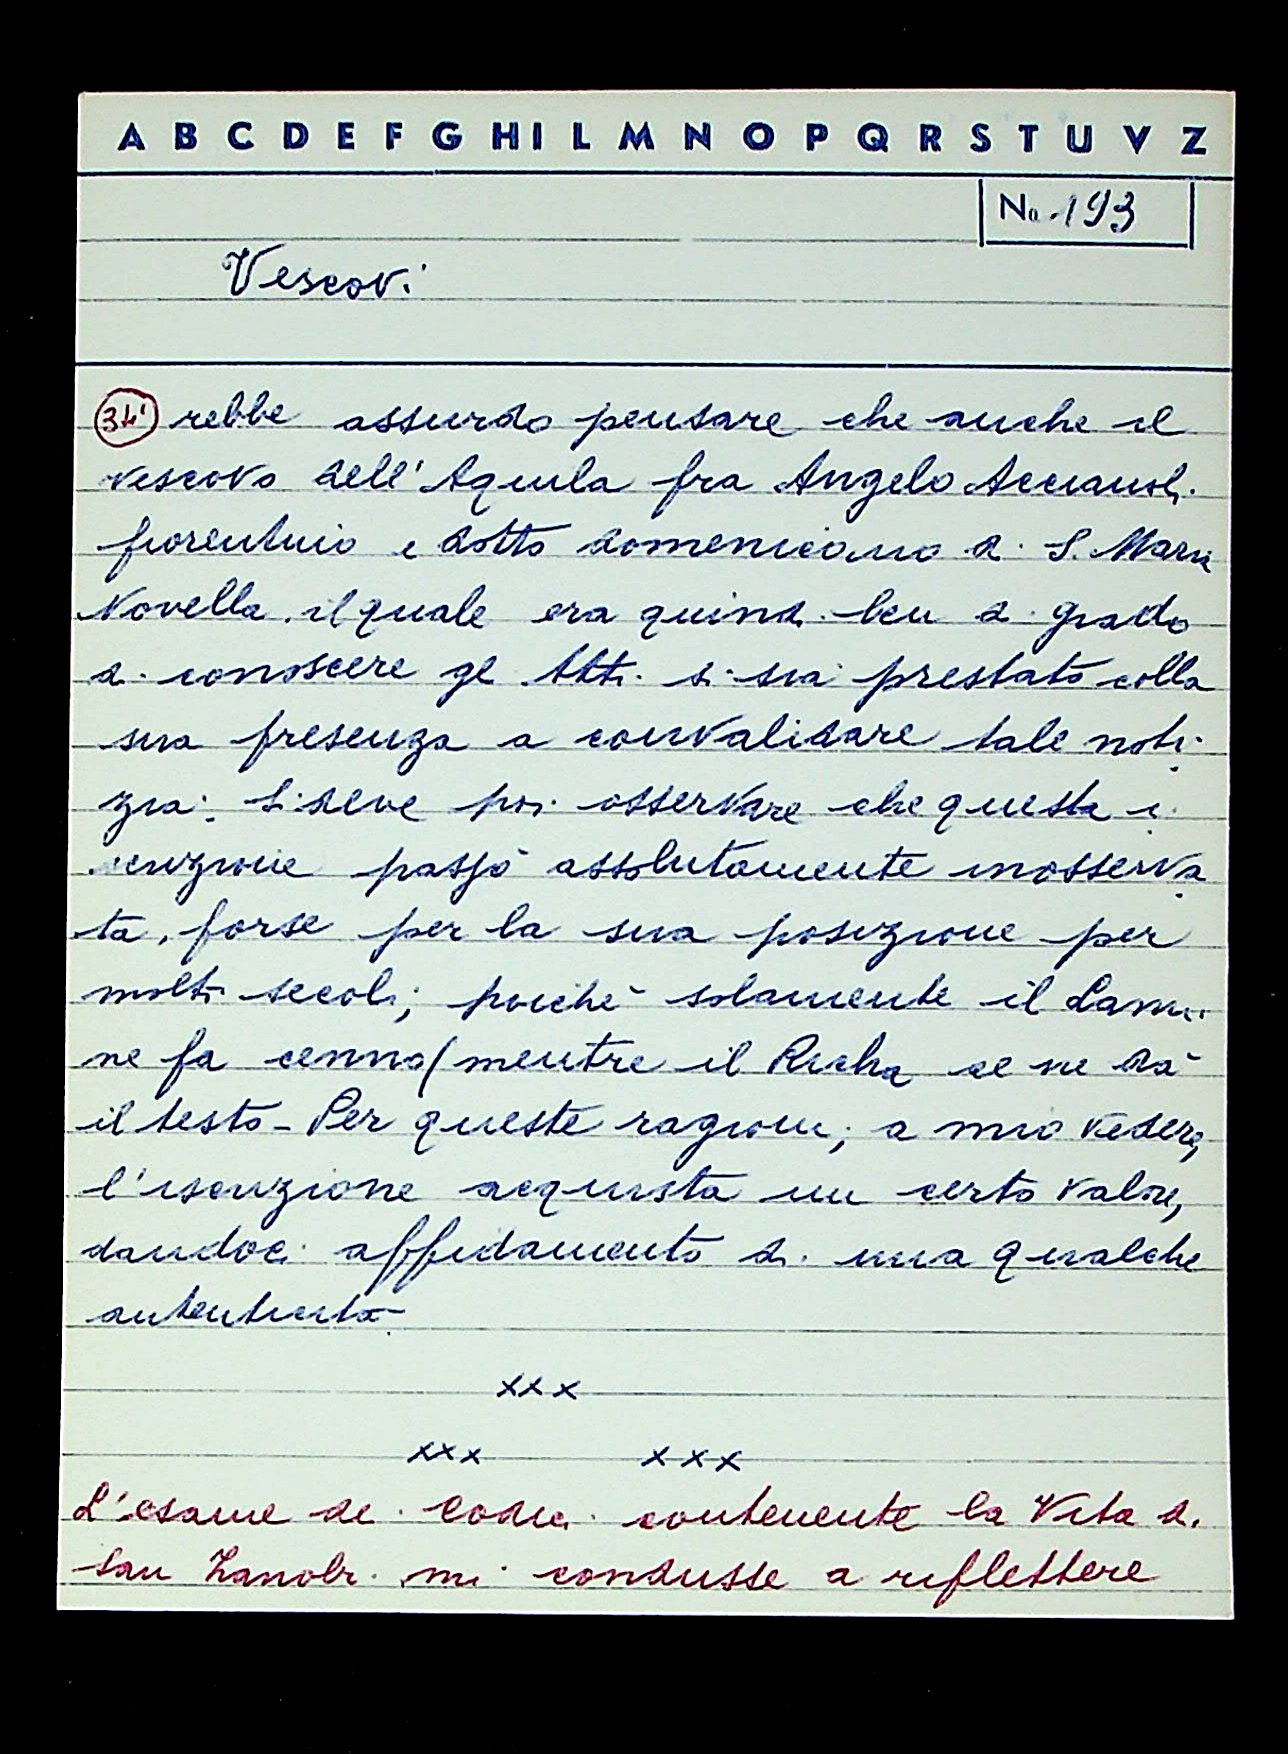 A B C D E F G H I L M N O P Q R S T U V Z
No. 193
Vescovi
34' rebbe assurdo pensare che anche il
vescovo dell'Aquila fra Angelo Acciaiuoli
fiorentino e dotto domenicano di S. Maria
Novella, il quale era quindi ben di grado
di conoscere gli Atti si sia prestato colla
sua presenza a convalidare tale noti-
zia. Si deve poi osservare che questa i-
scrizione passò assolutamente inosserva
ta, forse per la sua posizione per
molti secoli; poichè solamente il Lami
ne fa cenno/mentre il Richa ce ne dà
il testo - Per queste ragioni, a mio vedere,
l'iscrizione acquista un certo valore,
dandoci affidamento di una qualche
autenticità-
x x x
x x x x x x
L'esame dei Codici contenente la Vita di
San Zanobi mi condusse a riflettere